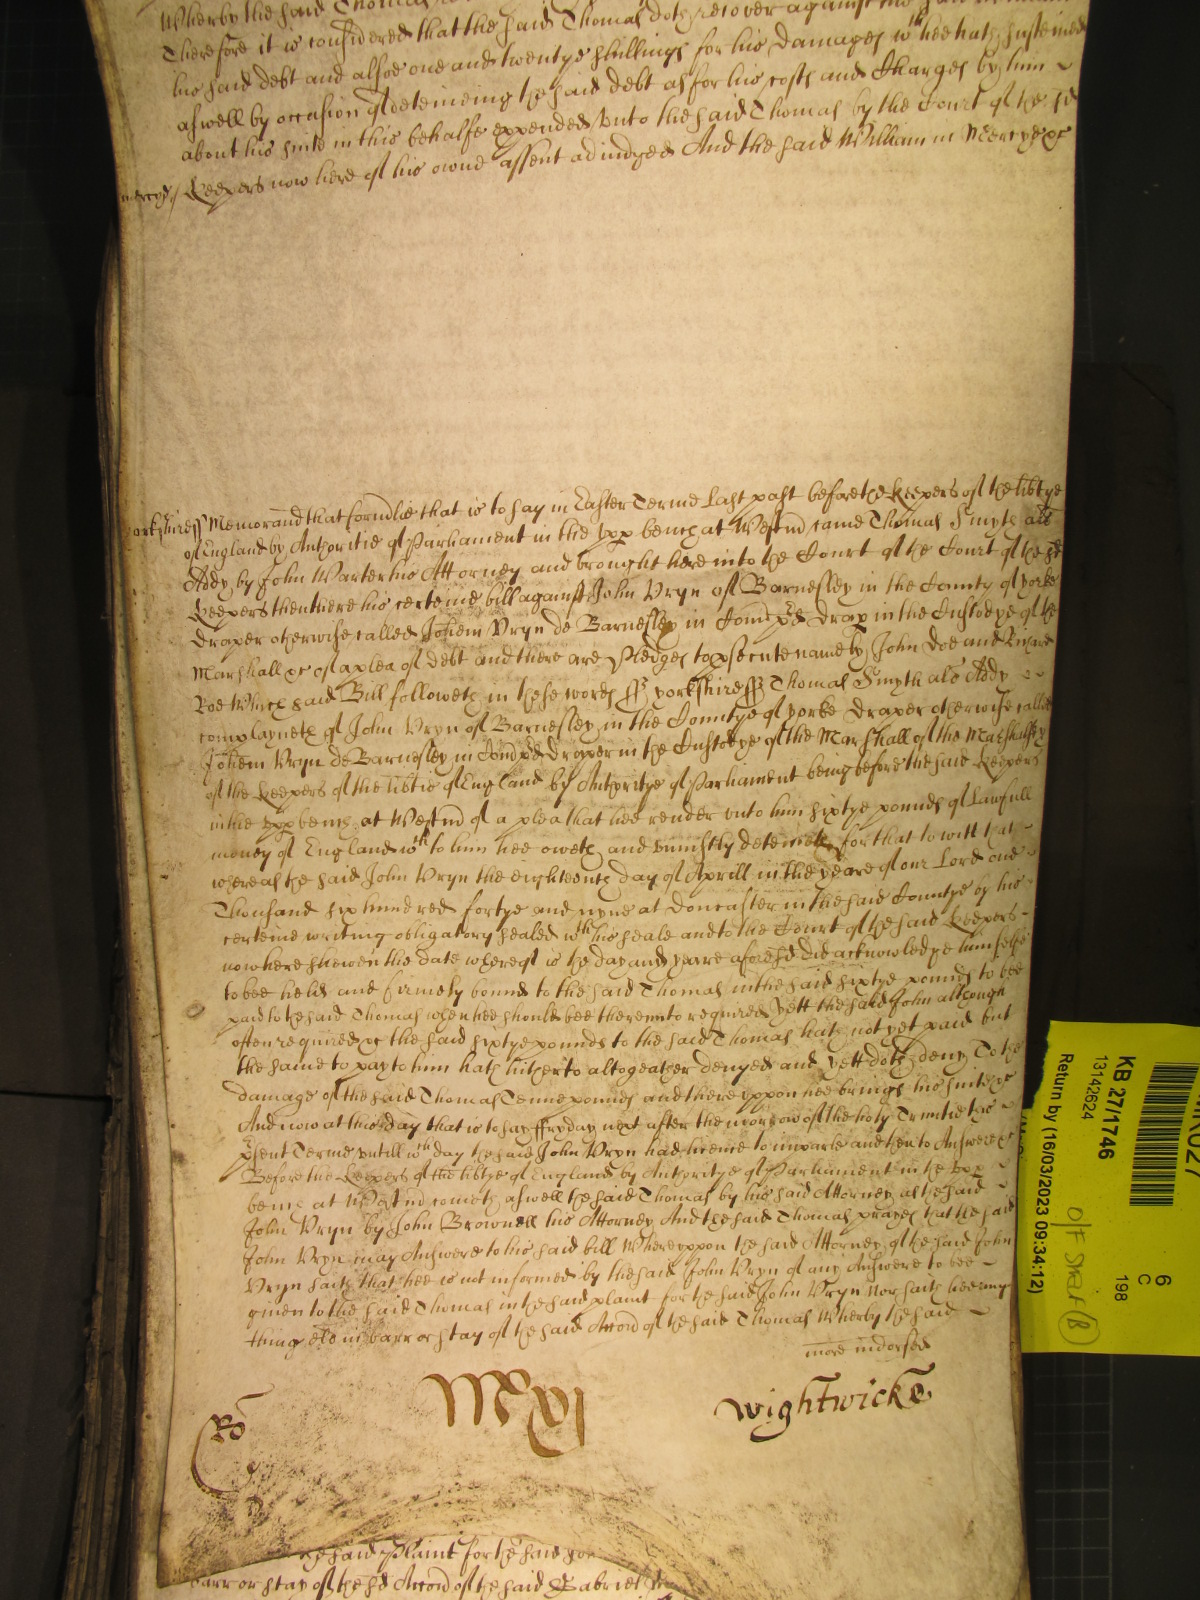 Wherby the said Thomas
Therefore it is considered that the said Thomas doth recover against the said William
his said debt and alsoe one and twentye shillings for his damages wch hee hath susteined
aswell by occasion of deteineing the said debt as for his costs and Charges by him
about his suite in this behalfe expended vnto the said Thomas by the Court of the sd
mercye / Keepers now here of his owne assent adiudged And the said William in Mercye &c
Yorkshire ss Memorand that formlie that is to say in Easter Terme last past before the Keepers of the libtye
of England by Authoritie of Parliament in the vpp bench at Westmd came Thomas Smyth als
Addy by John Warter his Attorney and brought here into the Court of the Court of the sd
Keepers then there his certeine bill against John Vryn of Barnesley in the County of yorke
draper otherwise called Johem Vryn de Barnesley in Com pd drap in the Custodye of the
Marshall &c of a plea of debt and there are Pledges to psecute namely John Doe and Richard
Roe Which said Bill followeth in these words ss yorkshire ss Thomas Smyth als Addy
complayneth of John Vryn of Barnesley in the Countye of yorke draper otherwise called
Johem Vryn de Barnesley in Com pd draper in the Custodye of the Marshall of the Marshalsey
of the Keepers of the libtie of England by Authoritye of Parliament being before the said Keepers
in the vpp bench at Westmd of a plea that hee render vnto him sixtye pounds of lawfull
money of England wch to him hee oweth and vniustly deteineth for that to witt that
whereas the said John Vryn the eighteenth day of Aprill in the yeare of our Lord one
Thousand six hundred fortye and nyne at Doncaster in the said Countye by his
certeine writing obligatory sealed wth his seale and to the Court of the said Keepers
now here shewen the date whereof is the day and yeare aforesd did acknowledge himselfe
to bee held and firmely bound to the said Thomas in the said sixtye pounds to bee
paid to the said Thomas when hee should bee therevnto required yett the said John although
often required &c the said sixtye pounds to the said Thomas hath not yet paid but
the same to pay to him hath hitherto altogeather denyed and yett doth deny To the
damage of the said Thomas Tenne pounds and therevppon hee brings his suite &c
And now at this day that is to say ffryday next after the morrow of the holy Trinitie this
psent Terme vntill wch day the said John Vryn had licence to imparle and then to Answere &c
Before the Keepers of the libtye of England by Authoritye of Parliament in the vpp
bench at Westmd cometh aswell the said Thomas by his said Attorney as the said
John Vryn by John Brownell his Attorney And the said Thomas prayes that the said
John Vryn may Answere to his said bill Wherevppon the said Attorney of the said John
Vryn saith that hee is not informed by the said John Vryn of any Answere to bee
given to the said Thomas in the said plaint for the said John Vryn Nor saith hee any
thing els in barr or stay of the said Accon of the said Thomas Wherby the said
more indorsed
Ro
Wightwicke
the said Plaint for the said
barr or stay of the sd Accon of the said Gabriel
KB 27/1746
13142624
Return by (16/03/2023 09:34:12)
6
C
198
O/F Shelf (B)